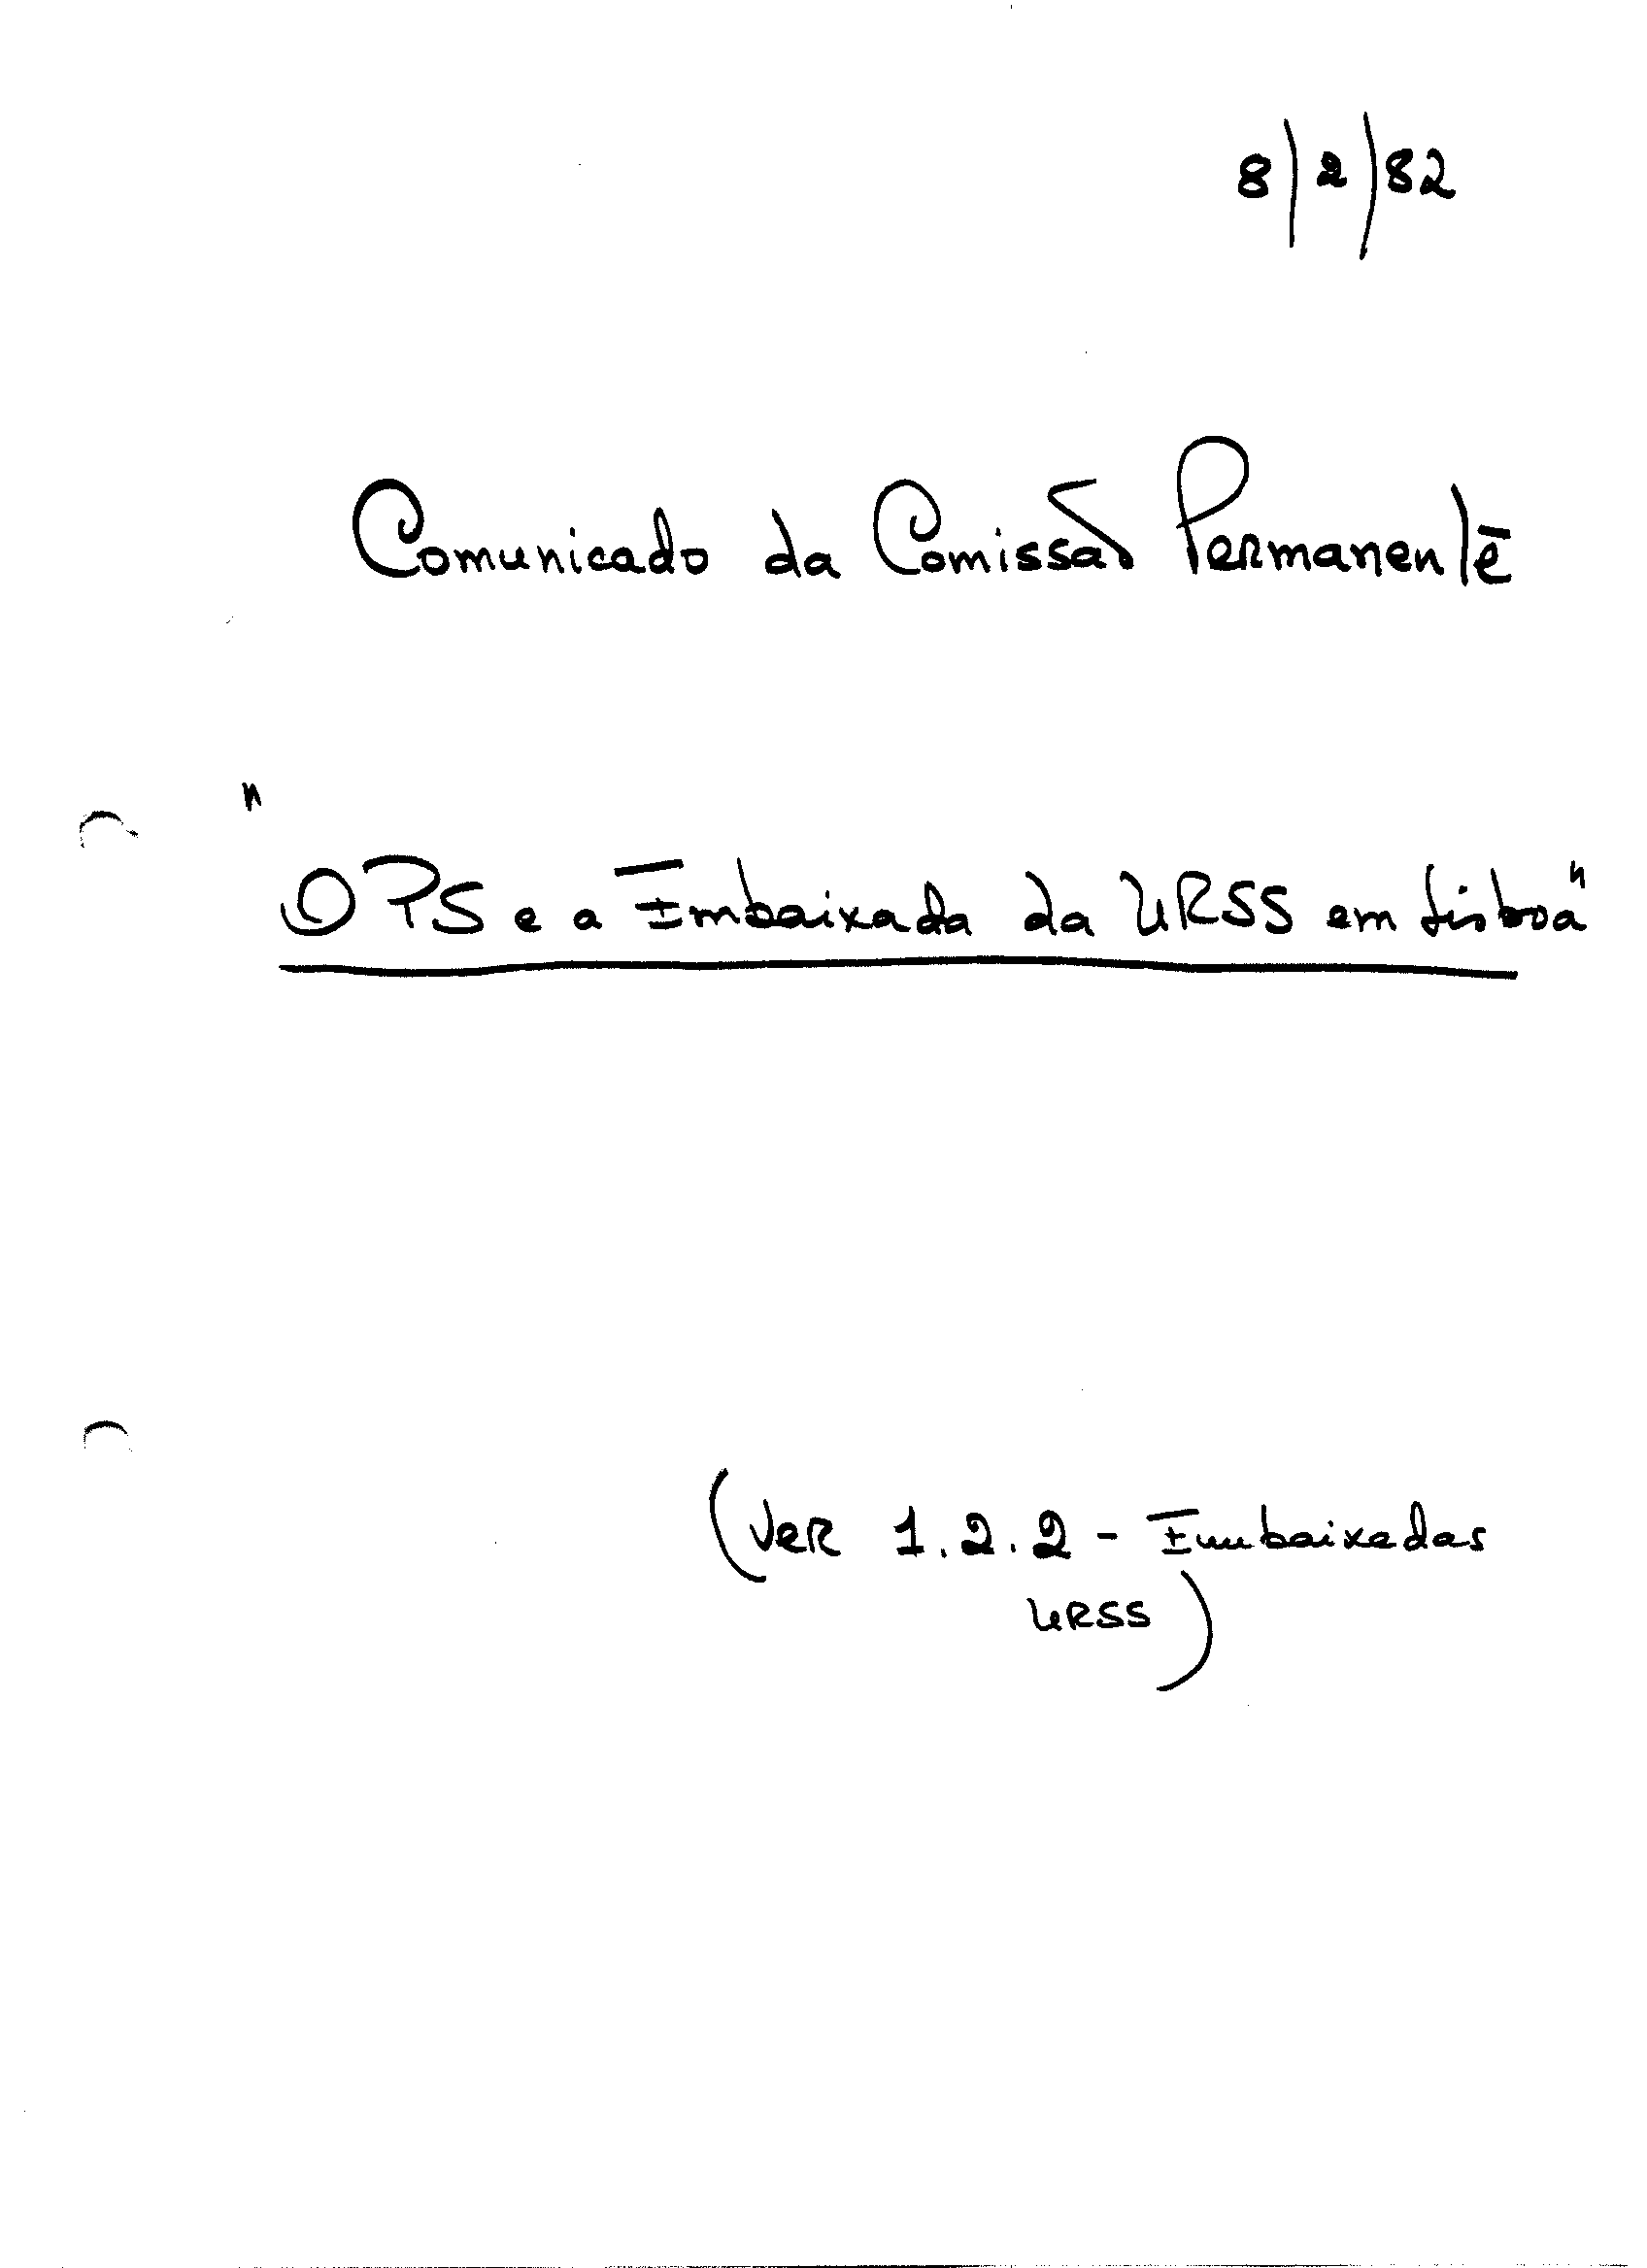 8/2/82
Comunicado da Comissão Permanente
"O PS e a Embaixada da URSS em Lisboa"
(Ver 1.2.2 - Embaixadas
URSS)